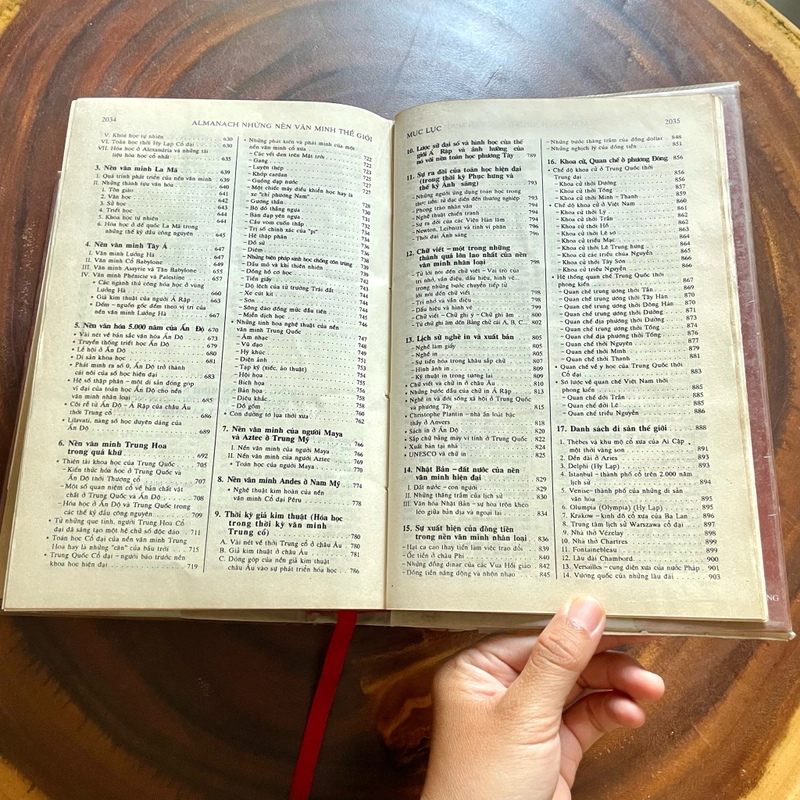 2034
ALMANACH NHỮNG NỀN VĂN MINH THẾ GIỚI
V. Khoa học tự nhiên 630
VI. Toán học thời Hy Lạp Cổ đại 630
VII. Hóa học ở Alexandria và những tài
liệu hóa học cổ nhất 635
3. Nền văn minh La Mã
I. Quá trình phát triển của nền văn minh 639
II. Những thành tựu văn hóa 640
1. Tôn giáo 640
2. Văn học 641
3. Sử học 642
4. Triết học 644
5. Khoa học tự nhiên 644
6. Hóa học ở đế quốc La Mã trong
những thế kỷ đầu công nguyên 645
4. Nền văn minh Tây Á
I. Văn minh Lưỡng Hà 647
II. Văn minh Cổ Babylone 649
III. Văn minh Assyrie và Tân Babylone 655
IV. Văn minh Phénicie và Palestine 657
• Các ngành thủ công hóa học ở vùng
Lưỡng Hà 661
• Giả kim thuật của người Ả Rập 663
• Đếm - nguồn gốc đếm theo vị trí của
nền văn minh Lưỡng Hà 667
5. Nền văn hóa 5.000 năm của Ấn Độ 670
• Vài nét về bản sắc văn hóa Ấn Độ 670
• Truyền thống triết học Ấn Độ 677
• Lễ hội ở Ấn Độ 680
• Di sản khoa học 681
• Phát minh ra số 0, trở thành
cái nôi của số học hiện đại 683
• Hệ số thập phân - một di sản đóng góp
vĩ đại của toán học Ấn Độ cho nền
văn minh nhân loại 685
• Cội rễ từ Ấn Độ - Ả Rập của châu Âu
thời Trung cổ 686
• Ljlavati, nàng số học duyên dáng của
Ấn Độ 689
6. Nền văn minh Trung Hoa
trong quá khứ 692
• Thiên tài khoa học của Trung Quốc 705
- Kiến thức hóa học ở Trung Quốc và
Ấn Độ thời Thượng cổ 707
- Một số quan niệm cổ về bản chất vật
chất ở Trung Quốc và Ấn Độ 708
- Hóa học ở Ấn Độ và Trung Quốc trong
các thế kỷ đầu công nguyên 709
• Từ những que tính, người Trung Hoa Cổ
đại đã sáng tạo một hệ chữ số độc đáo 711
• Toán học Cổ đại của nền văn minh Trung
Hoa hay là những "căn" của bầu trời 715
• Trung Quốc Cổ đại - người báo trước nền
khoa học hiện đại 719
• Những phát kiến và phát minh của một
nền văn minh cổ xưa 722
- Các vết đen trên Mặt trời 722
- Gang 727
- Luyện thép 727
- Khớp cardan
- Guồng đạp nước
- Một chiếc máy điều khiển học hay là
xe "chỉ phương Nam"
- Gương thần
- Bơ đồ thẳng ngựa
- Bàn đạp yên ngựa
- Cầu vòm cuốn thấp
- Trị số chính xác của "pi"
- Hệ thập phân
- Đồ sứ
- Diêm
• Những biện pháp sinh học chống côn trùng
- Dầu mỏ và khí thiên nhiên
- Đồng hồ cơ học
- Tiền giấy
- Độ lệch của từ trường Trái đất
- Xe cút kít
- Sơn
- Sông đào đóng mức đầu tiên
- Miễn dịch học
• Những tinh hoa nghệ thuật của nền
văn minh Trung Quốc
- Âm nhạc
- Vũ đạo
- Hý khúc
- Điện ảnh
- Tạp kỹ (xiếc, ảo thuật)
- Hội họa
- Bích họa
- Bản họa
- Điêu khắc
- Đồ gốm
• Con đường tơ lụa thời xưa 762
7. Nền văn minh của người Maya
và Aztec ở Trung Mỹ
I. Nền văn minh của người Maya 766
II. Nền văn minh của người Aztec 769
• Toán học của người Maya 770
8. Nền văn minh Andes ở Nam Mỹ 774
• Nghệ thuật kim hoàn của nền
văn minh Cổ đại Pêru 778
9. Thời kỳ giả kim thuật (Hóa học
trong thời kỳ văn minh
Trung cổ) 780
A. Vài nét về thời Trung cổ ở châu Âu 780
B. Giả kim thuật ở châu Âu 781
C. Dòng góp của nền giả kim thuật
châu Âu vào sự phát triển hóa học 786
MỤC LỤC
2035
10. Lược sử đại số và hình học của thế
giới Ả Rập và ảnh hưởng của
nó với nền toán học phương Tây 789
11. Sự ra đời của toán học hiện đại
(trong thời kỳ Phục hưng và
thế kỷ Ánh sáng) 793
• Những người ứng dụng toán học trong
thực tiễn: từ đạc điền đến thương nghiệp 793
• Phong trào nhân văn 794
• Nghệ thuật chiến tranh 794
• Sự ra đời của các Viện Hàn lâm 794
• Newton, Leibniz và tính vi phân 796
• Thời đại Ánh sáng 796
12. Chữ viết - một trong những
thành quả lớn lao nhất của nền
văn minh nhân loại 798
- Từ lời nói đến chữ viết - Vai trò của
trí nhớ, văn điệu, dấu hiệu, hình vẽ
trong những bước chuyển tiếp từ
lời nói đến chữ viết 798
- Trí nhớ và văn điệu 798
- Dấu hiệu và hình vẽ 799
- Chữ viết - Chữ ghi ý - Chữ ghi âm 800
- Từ chữ ghi âm đến Bảng chữ cái A, B, C... 802
13. Lịch sử nghề in và xuất bản 805
- Nghề làm giấy 805
- Nghề in 805
- Sự tiến hóa trong khâu sắp chữ 807
- Hình ảnh in 808
- Kỹ thuật in trong tương lai 809
• Chữ viết và chữ in ở châu Âu 810
• Những bước đầu của chữ in Ả Rập 813
• Nghề in và đời sống xã hội ở Trung Quốc
và phương Tây 815
• Christophe Plantin - nhà ấn loát bậc
thầy ở Anvers 818
• Sách in ở Ấn Độ 820
• Sắp chữ bằng máy vi tính ở Trung Quốc 822
• Xuất bản tại nhà 824
• UNESCO và chữ in 825
14. Nhật Bản - đất nước của nền
văn minh hiện đại 829
I. Đất nước - con người 829
II. Những thăng trầm của lịch sử 830
III. Văn hóa Nhật Bản - sự hòa trộn khéo
léo giữa bản địa và ngoại lai 834
15. Sự xuất hiện của đồng tiền
trong nền văn minh nhân loại 836
- Hạt ca cao thay tiền làm việc trao đổi 839
- Ốc tiền ở châu Phi 840
- Những đồng dinar của các Vua Hồi giáo 842
- Đồng tiền năng động và nhộn nhạo 845
- Những bước thăng trầm của đồng dollar 848
- Những nghịch lý của đồng tiền 851
16. Khoa cử, Quan chế ở phương Đông 856
• Chế độ khoa cử ở Trung Quốc thời
Trung đại 856
- Khoa cử thời Đường 856
- Khoa cử thời Tống 857
- Khoa cử thời Minh - Thanh 859
• Chế độ khoa cử ở Việt Nam 860
- Khoa cử thời Lý 861
- Khoa cử thời Trần 862
- Khoa cử thời Hồ 863
- Khoa cử thời Lê sơ 863
- Khoa cử triều Mạc 864
- Khoa cử thời Lê Trung hưng 864
- Khoa cử các triều chúa Nguyễn 865
- Khoa cử thời Tây Sơn 866
- Khoa cử triều Nguyễn 866
• Hệ thống quan chế Trung Quốc thời
phong kiến 867
- Quan chế trung ương thời Tần 867
- Quan chế trung ương thời Tây Hán 870
- Quan chế trung ương thời Đông Hán 870
- Quan chế trung ương thời Đường 871
- Quan chế địa phương thời Đường 873
- Quan chế trung ương thời Tống 874
- Quan chế địa phương thời Tống 876
- Quan chế thời Nguyên 877
- Quan chế thời Minh 879
- Quan chế thời Thanh 881
• Quan chế về y học của Trung Quốc thời
Cổ đại 883
• Sơ lược về quan chế Việt Nam thời
phong kiến 885
- Quan chế đời Trần 885
- Quan chế đời Lê 885
- Quan chế triều Nguyễn 887
17. Danh sách di sản thế giới 888
1. Thèbes và khu mộ cổ xưa của Ai Cập,
một thời vàng son 891
2. Đền đài ở Aries 893
3. Delphi (Hy Lạp) 893
4. Istanbul - thành phố cổ trên 2.000 năm
lịch sử 894
5. Venise - thành phố của những di sản
văn hóa 895
6. Olumpia (Olympia) (Hy Lạp) 895
7. Krakow - kinh đô cổ xưa của Ba Lan 896
8. Trung tâm lịch sử Warszawa cổ đại 897
9. Nhà thờ Vézelay 898
10. Nhà thờ Chartres 899
11. Fontainebleau 899
12. Lâu đài Chambord 900
13. Versailles - cung điện xưa của nước Pháp 901
14. Vương quốc của những lâu đài 903